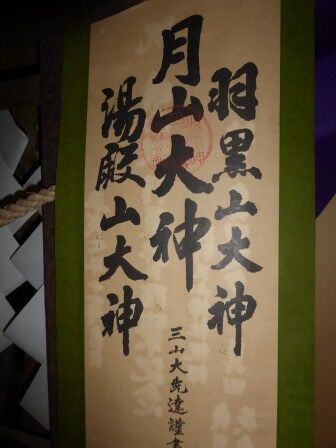 羽黒山大神
月山大神
湯殿山大神
三山大先達謹書